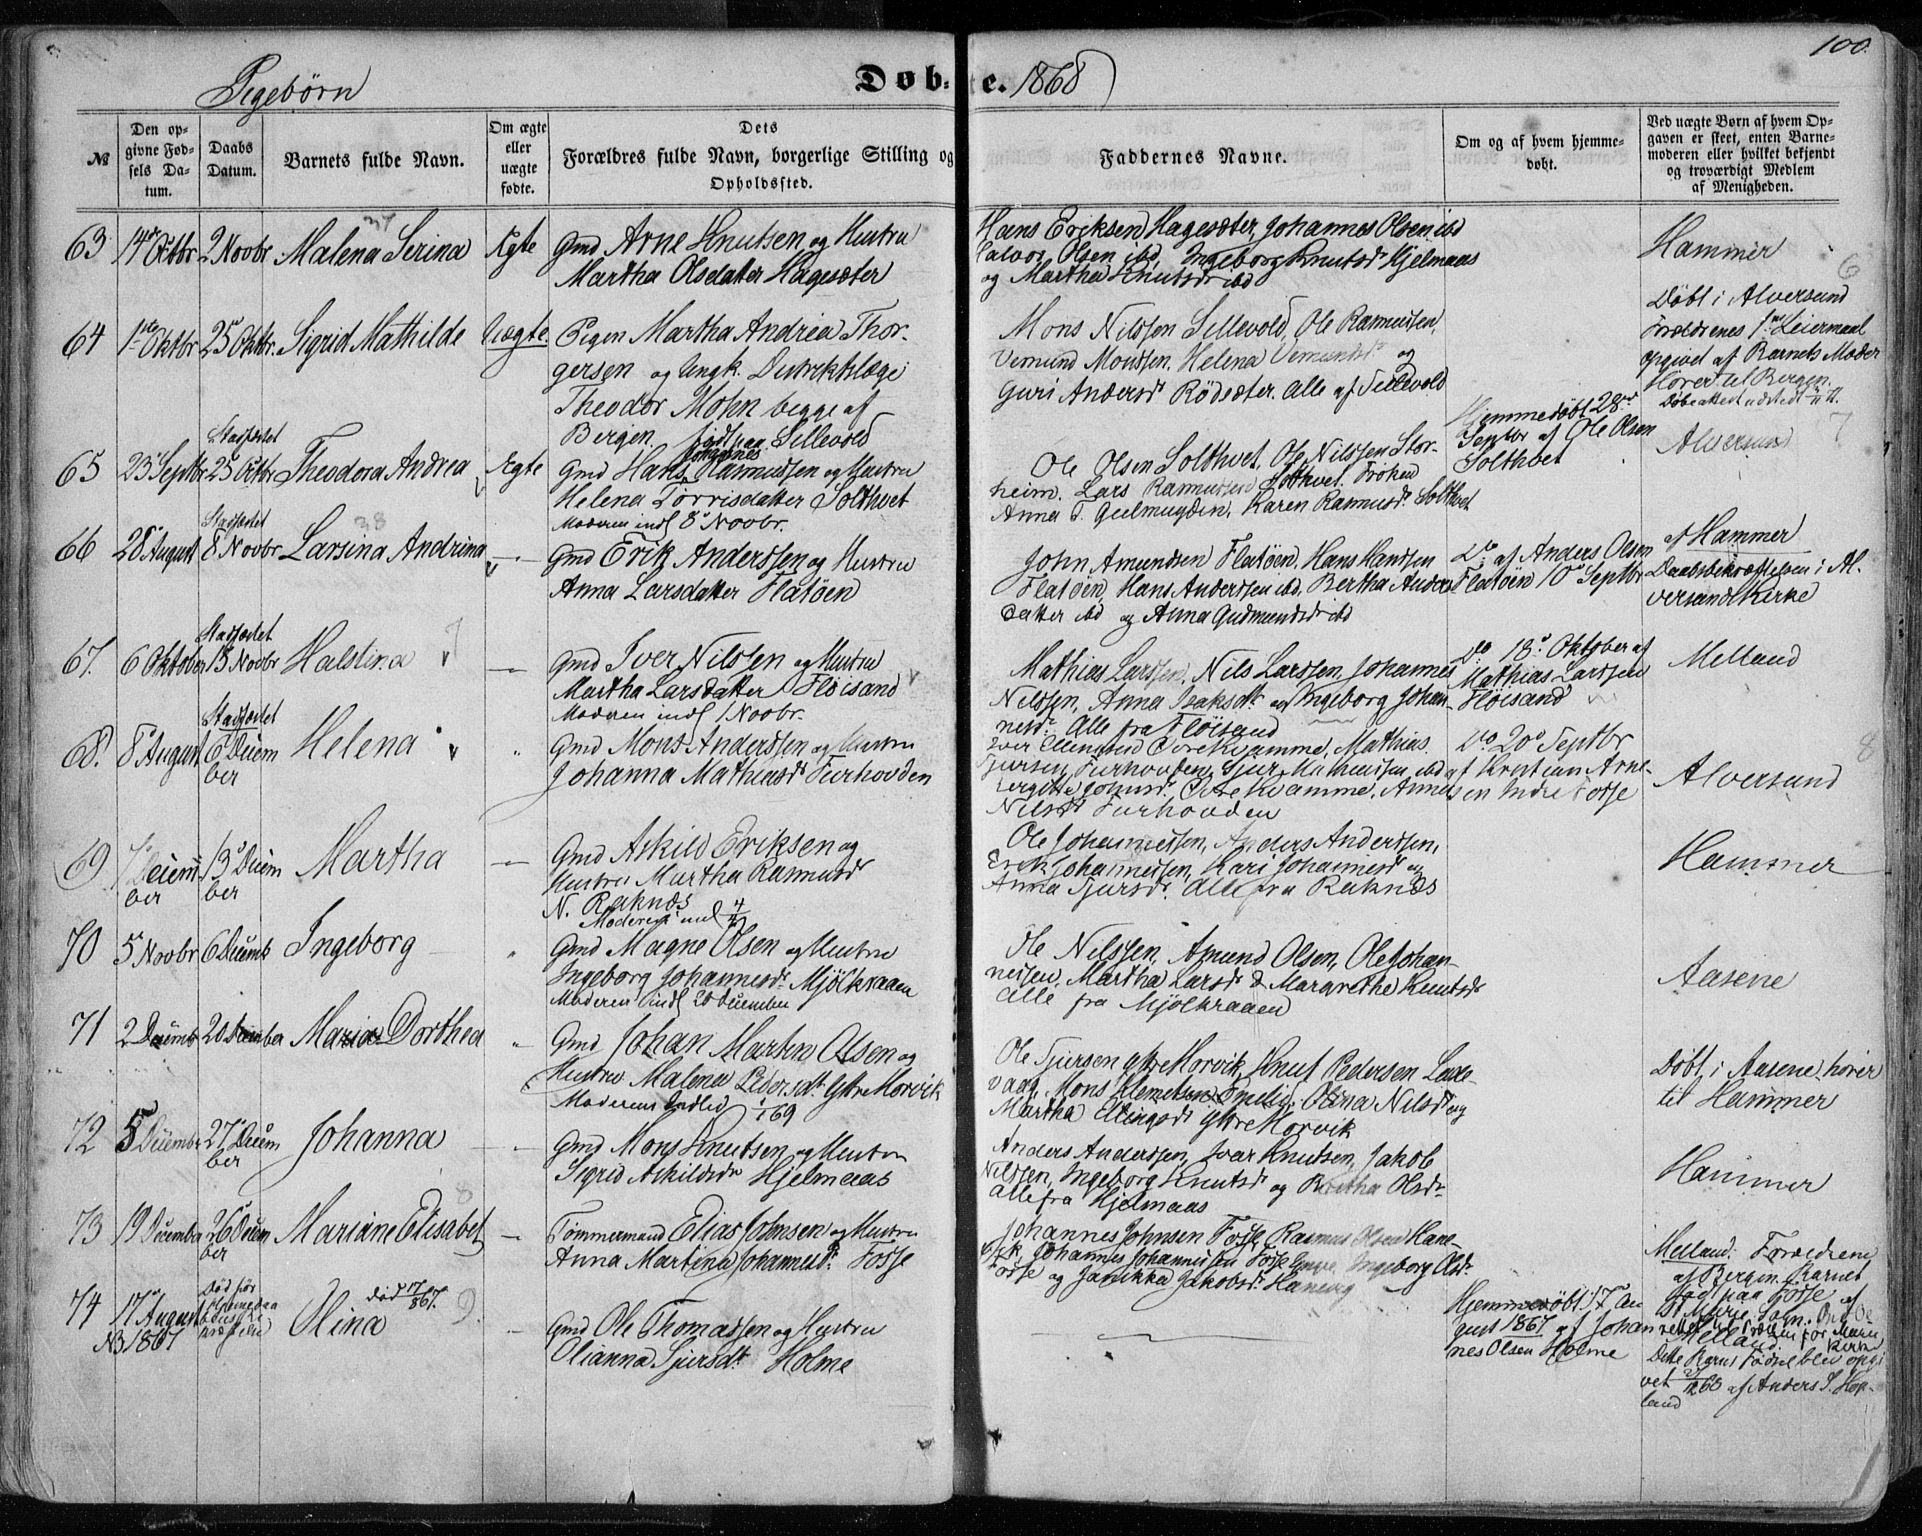 100.
Pigebørn
Døbte. 1868
№
Den op-
givne Fød-
sels Da-
tum.
Daabs
Datum.
Barnets fulde Navn.
Om ægte
eller
uægte
fødte.
Dets
Forældres fulde Navn, borgerlige Stilling og
Opholdssted.
Faddernes Navne.
Om og af hvem hjemme-
døbt.
Ved uægte Børn af hvem Op-
gaven er skeet, enten Barne-
moderen eller hvilket bekjendt
og troværdigt Medlem
af Menigheden.
63 14de Oktbr 2 Novbr Malena Serina Ægte
Gmd Arne Knutsen og Hustru
Martha Olsdatter Hagesæter
Hans Eriksen Hagesæter, Johannes Olsen ibd
Halvor Olsen ibd, Ingeborg Knutsdr Hjelmaas
og Martha Knutsdr ibd
Hammer
6
64 1ste Oktbr 25 Oktbr. Sigrid Mathilde Uægte.
Pigen Martha Andrea Thor-
gersen og Ungk. Distriktslæge
Theodor Mohn begge af
Bergen. født paa Sillevold
Mons Nilssen Sillevold, Ole Rasmussen,
Vemund Monssen, Helena Vemundsdr og
Guri Andersdr Rödsæter. Alle af Sillevold
Døbt i Alversund
Forældrenes 1ste Leiermaal
opgivet af Barnets Moder
Hører til Bergen.
Døbeattest udstedt
65 23 Septbr Stadfæstet 25 Oktbr Theodora Andrea Ægte
Gmd Hans Johannes Rasmussen og Hustru
Helena Torrisdatter Solthvet
Moderen indl 8 Novbr.
Ole Olsen Solthvet, Ole Nilssen Stor-
heim. Lars Rasmussen Solthvet. Frøken
Anna T. Gulmugden, Karen Rasmusdr Solthvet
Hjemmedøbt 28de
Septbr af Ole Olsen
Solthvet
Alversund 7
66 28 August Stadfæstet 8 Novbr 38 Larsina Andrina —
Gmd Erik Anderssen og Hustru
Anna Larsdatter Flatöen
John Amundsen Flatöen, Hans Hanssen
Flatöen, Hans Anderssen ibd, Bertha Anders
Datter ibd og Anna Gudmundsdr ibd
Do af Anders Olsen
Flatöen 10 Septbr
af Hammer
Daabsbekræftelsen i Al-
versunds Kirke
67. 6 Oktober Stadfæstet 15 Novbr Halstina 7 —
Gmd Iver Nilssen og Hustru
Martha Larsdatter Fløisand
Moderen indl 1 Novbr.
Mathias Larssen, Nils Larssen, Johannes
Nilssen, Anna Isaksdr og Ingeborg Johan-
nesdr. Alle fra Fløisand
Do 18 Oktober af
Mathias Larssen
Fløisand
Melland
68. 8 August Stadfæstet 6 Decem
ber Helena "
Gmd Mons Anderssen og Hustru
Johanna Mathiasdr Furhovden
Iver Ellingsen Øvrekvamme, Mathias
Sjursen Furhovden, Sjur Mathiassen ibd
Øvre Kvamme, Anna
Nilsdr Furhovden
Do 20 Septbr
af Kristian Arne-
sen Indre Fosse
Alversund
8
69 Decem
ber 13 Decem
ber Martha —
Gmd Askild Eriksen og
Hustru Martha Rasmusdr
N. Raknæs
Moderen indl
Ole Johannessen, Anders Anderssen,
Erik Johannessen, Kari Johannesdr og
Anna Sjursdr. Alle fra Raknæs
Hammer
70 5 Novbr 6 Decemb Ingeborg "
Gmd Magne Olsen og Hustru
Ingeborg Johannesdr. Mjölkraaen
Moderen indl 20 December
Ole Nilssen, Amund Olsen, Ole Johan-
nessen, Martha Larsdr & Margrethe Knutsdr
alle fra Mjölkraaen
Aasene
71 2 Decemb 20 December Maria Dorthea "
Gmd Johan Martin Olsen og
Hustru Malena Pedersdt. Ytre Morvik
Moderens Indled 169
Ole Sjursen Ytre Morvik, Knut Pedersen Lade-
vaag, Mons Klemetsen, Olina Nilsdr og
Martha Ellingsdr Ytre Morvik
Døbt i Aasene, hører
til Hammer
72 5 Decembr 27 Decem
ber Johanna —
Gmd Mons Knutsen og Hustru
Sigrid Askildsdr Hjelmaas
Anders Anderssen, Ivar Knutsen, Jakob
Nilssen, Ingeborg Knutsdr og Bertha Olsdr
alle fra Hjelmaas
Hammer
73 19 December 26 Decem
ber 8 Mariane Elisabet —
Tømmermand Elias Johnsen og Hustru
Anna Martina Johannesdr. Fosse
Johannes Johnsen Fosse, Rasmus Olsen Hane-
vik, Johannes Johannessen Fosse, Ingeborg Olsdr.
Fosse og Janikka Jakobsdr. Hanevig
Melland. Forældrene
af Bergen. Barnet
født paa Fosse
74 17 August
NB 1867 Død før
Hjemmedaa
bens Be
kræftelse Olina død 17/8 67. 9.
Gmd Ole Thomassen og Hustru
Olianna Sjursdt. Holme
Hjemmedøbt 17 Au
gust 1867 af Johan
nes Olsen Holme
Melland.
Dette Barns Fødsel blev opgi
vet af Anders S. Hop-
land